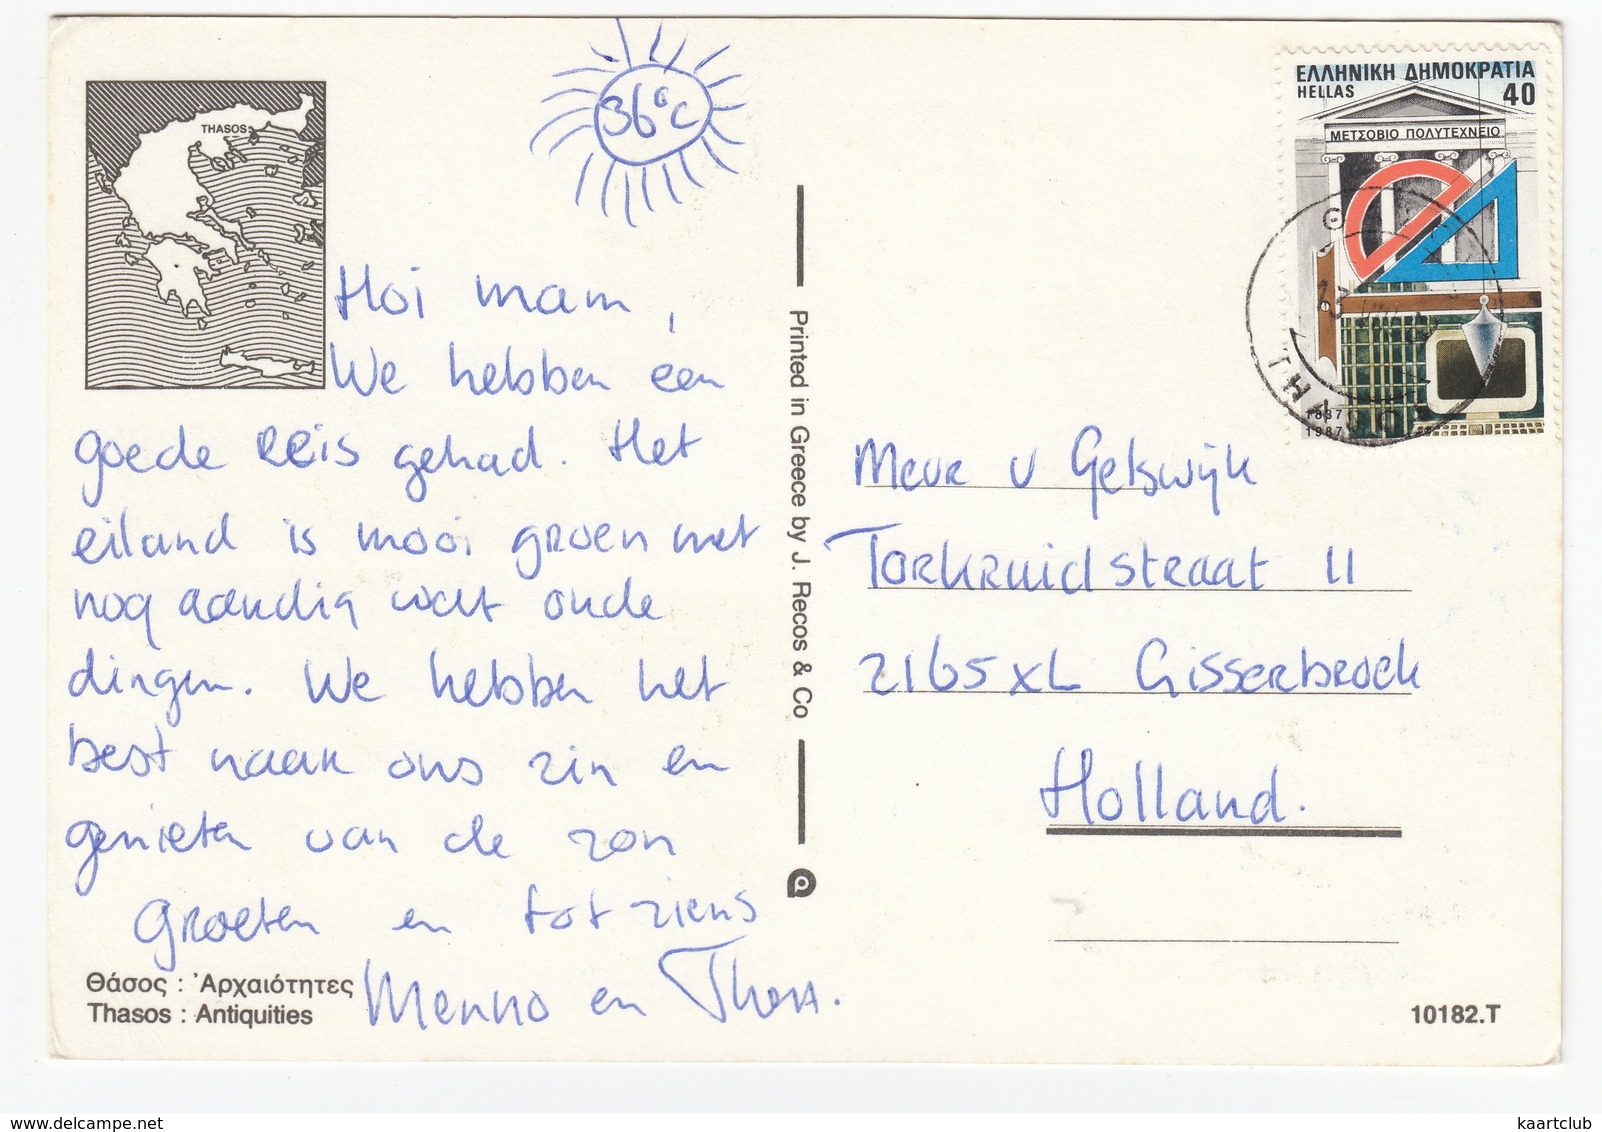 36°C
THASOS
ΕΛΛΗΝΙΚΗ ΔΗΜΟΚΡΑΤΙΑ
HELLAS 40
ΜΕΤΣΟΒΙΟ ΠΟΛΥΤΕΧΝΕΙΟ
1837
1987
Hoi mam,
We hebben een
goede reis gehad. Het
eiland is mooi groen met
nog aandig wat oude
dingen. We hebben het
best naak ons zin en
genieten van de zon
Groeten en tot ziens
Menno en
Θάσος : 'Αρχαιότητες
Thasos : Antiquities
Printed in Greece by J. Recos & Co
Mevr v Gelswijk
Torkruidstraat 11
2165XL Lisserbroek
Holland.
10182.T
kaartclub